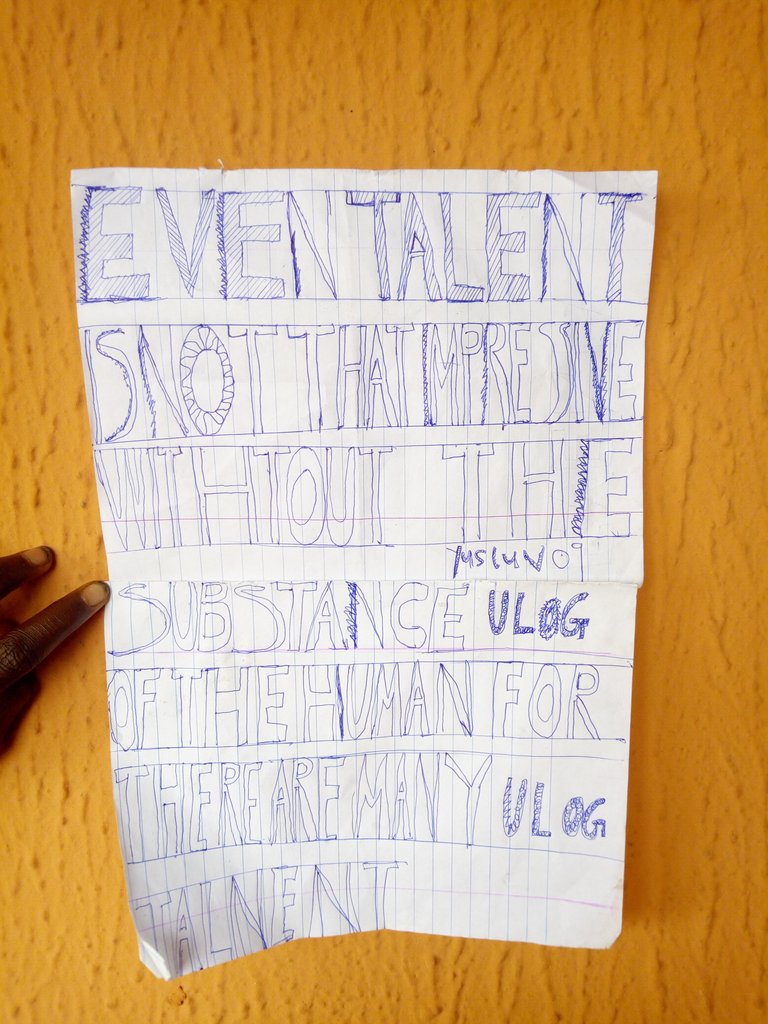 EVEN TALENT
IS NOT THAT IMPRESSIVE
WITHTOUT THE
yusluvo
SUBSTANCE ULOG
OF THE HUMAN FOR
THERE ARE MANY ULOG
TALNENT